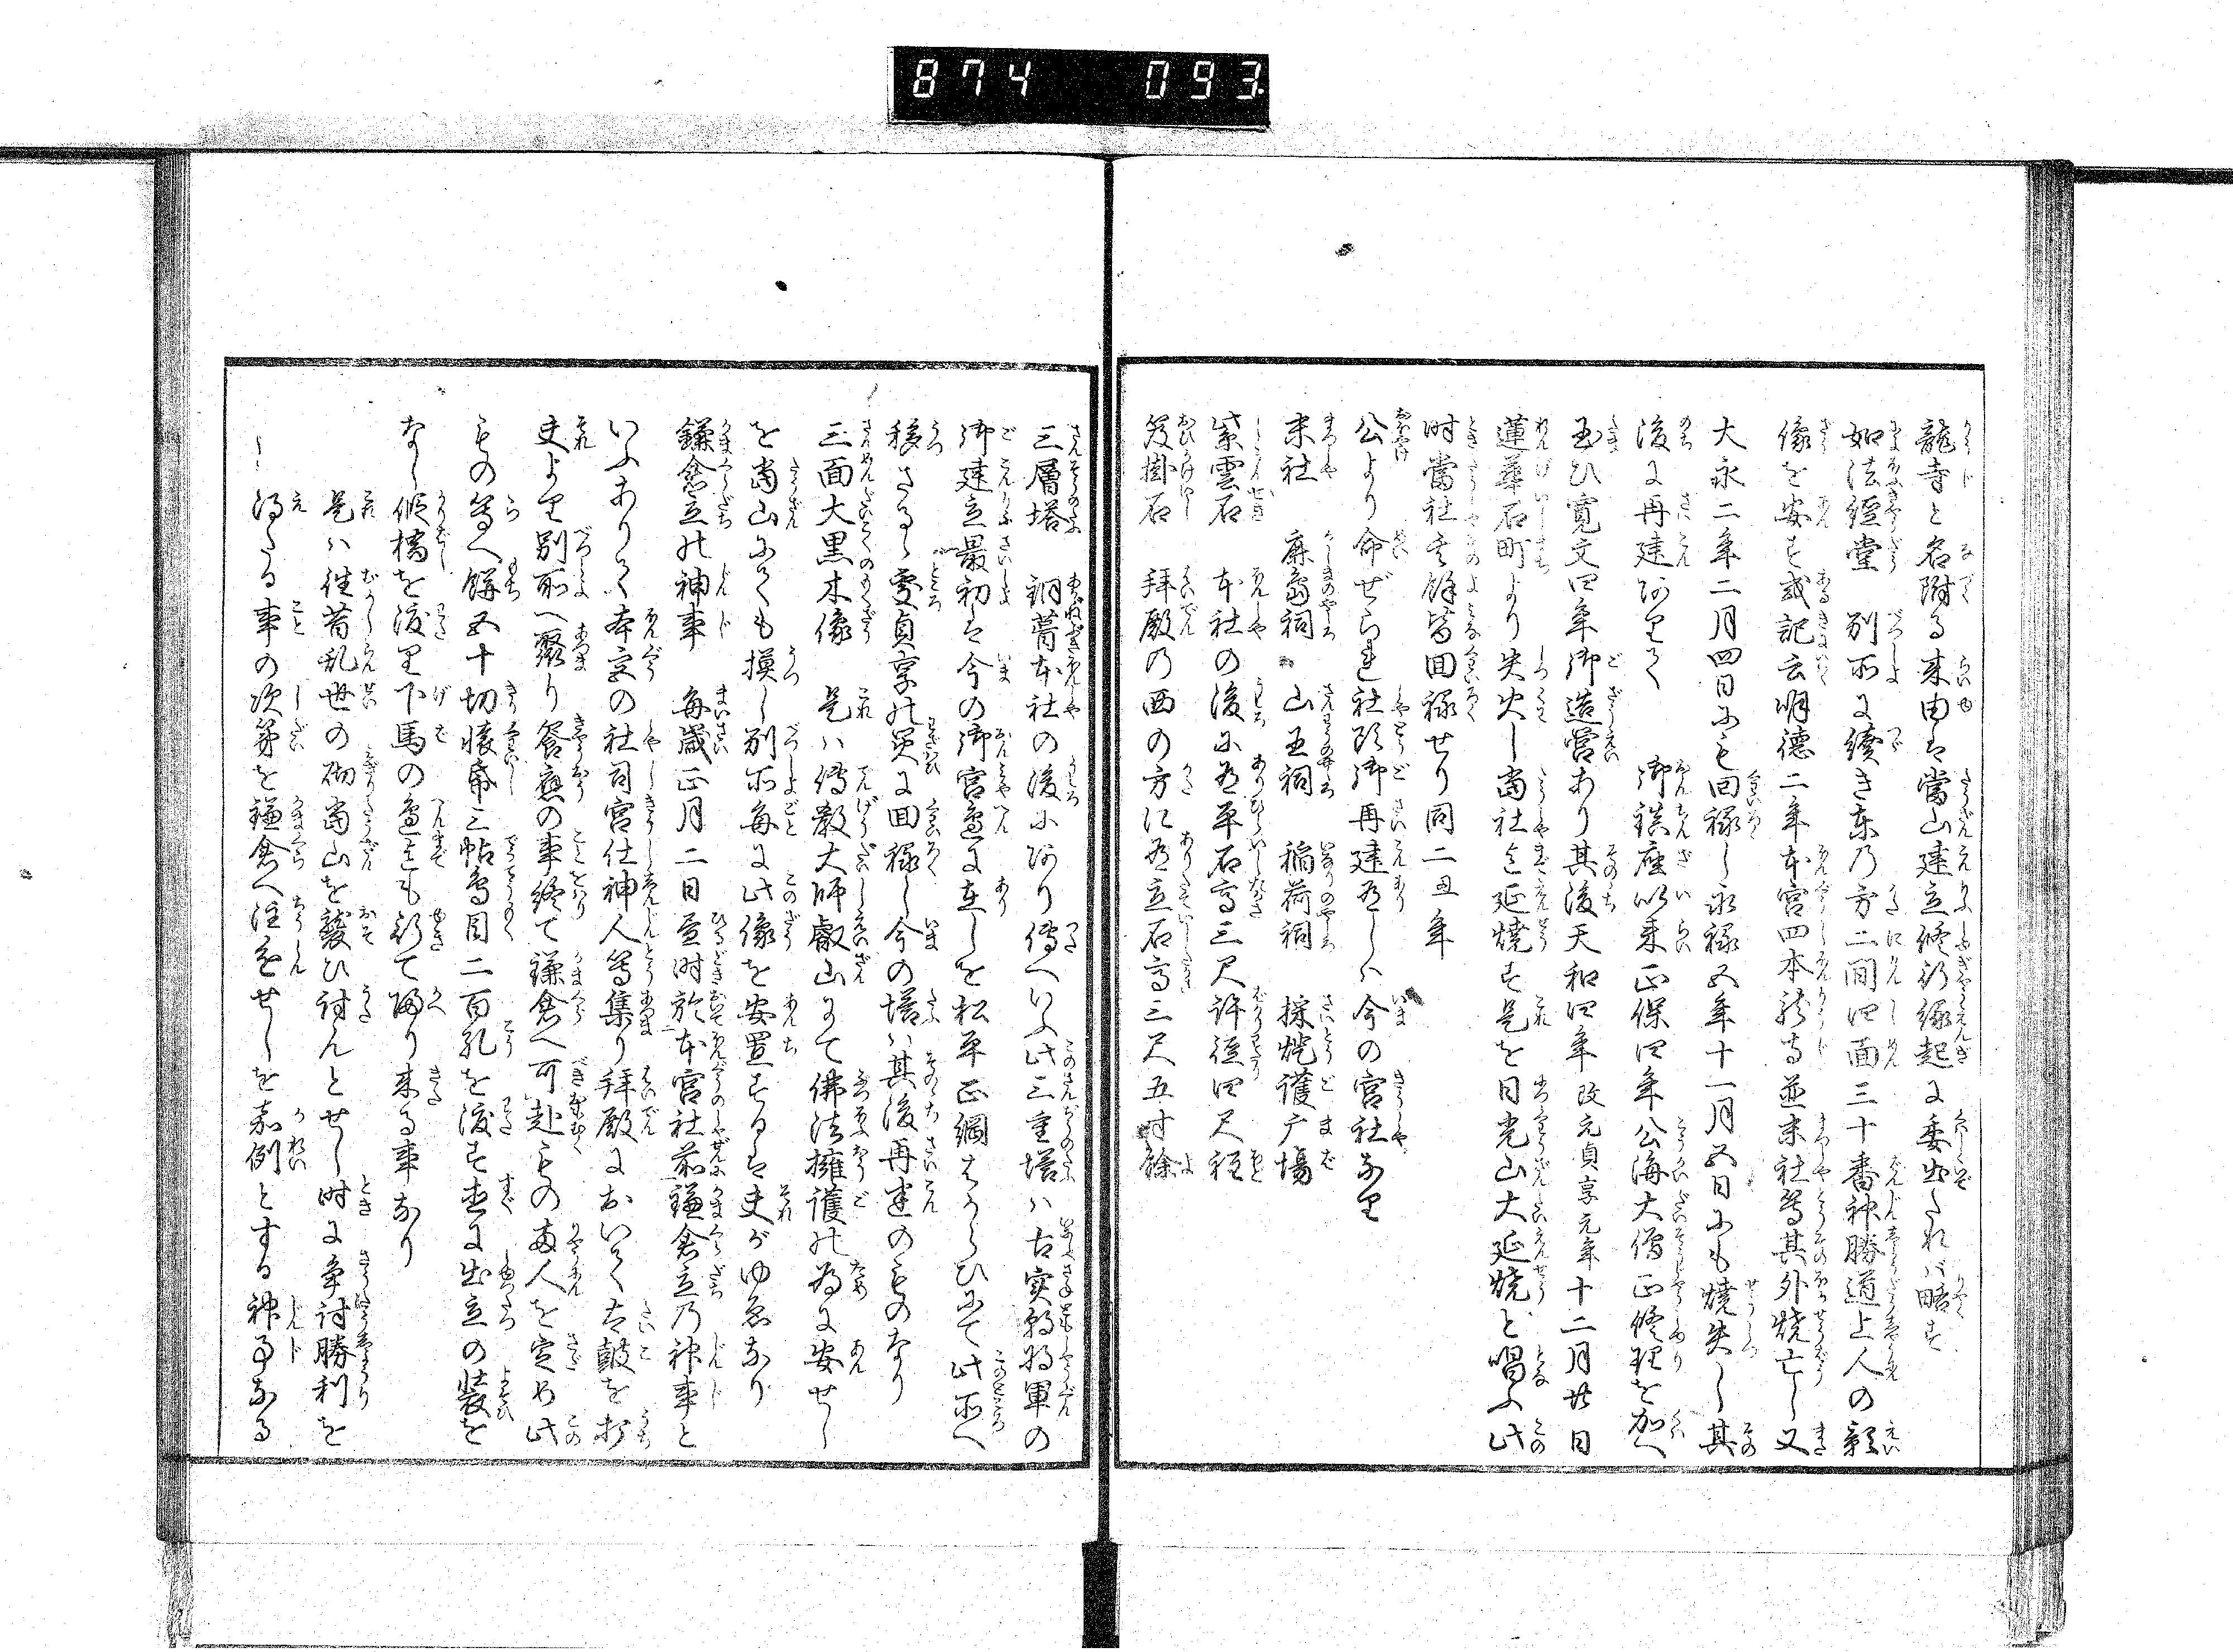 874 093
龍寺と名附る来由は當山建立修行縁起に委出たれバ略す
如法經堂 別所に續き東の方二間四面三十番神勝道上人の影
像を安す或記云明德二年本宮四本龍寺並末社等其外燒亡し又
大永二年二月四日にも回禄し永禄五年十一月五日にも燒失し其
後に再建ありて 御鎮座以来正保四年公海大僧正修理を加へ
玉ひ寛文四年御造営あり其後天和四年改元貞享元年十二月廿日
蓮華石町より失火し當社まで延燒す是を日光山大延燒と唱ふ此
時當社其餘皆回禄せり同二丑年
公より命ぜられ社頭御再建ありしハ今の宮社なり
末社 鹿島祠 山王祠 稲荷祠 採燈護广場
紫雲石 本社の後に有平石高三尺許徑四尺程
笈掛石 拜殿の西の方に有立石高三尺五寸餘
三層塔 銅葺本社の後にあり傳へいふ此三重塔ハ古実朝将軍の
御建立最初は今の御宮邉に在しを松平正綱はからひにて此所へ
移さる処貞享の災に回禄し今の塔ハ其後再建のものなり
三面大黒木像 是ハ傳教大師叡山にて佛法擁護の為に安せし
を當山にても摸し別所毎に此像を安置するは夫がゆゑなり
鎌倉立の神事 毎歳正月二日昼時於本宮社前鎌倉立乃神事と
いふありて本宮の社司宮仕神人等集り拜殿において太鼓を打
夫より別所へ聚り饗應の事終て鎌倉へ可赴もの両人を定め此
もの等へ餅五十切懐帋三帖鳥目二百孔を渡す直に出立の装を
なし假橋を渡り下馬の邉迄も行て歸り来る事なり
是ハ往昔乱世の砌當山を襲ひ討んとせし時に争討勝利を
得たる事の次第を鎌倉へ注進せしを嘉例とする神事なる